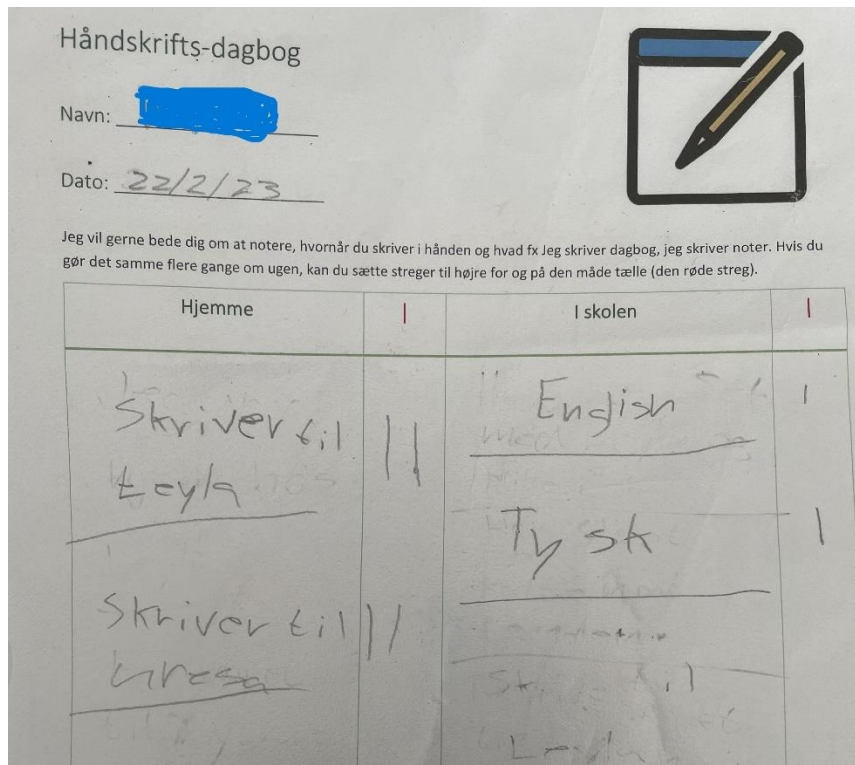 Håndskrifts-dagbog
Navn:
Dato: 22/2/23
Jeg vil gerne bede dig om at notere, hvornår du skriver i hånden og hvad fx Jeg skriver dagbog, jeg skriver noter. Hvis du
gør det samme flere gange om ugen, kan du sætte streger til højre for og på den måde tælle (den røde streg).
Hjemme | I skolen |
Skriver til ||
Leyla
English |
Tysk |
Skriver til ||